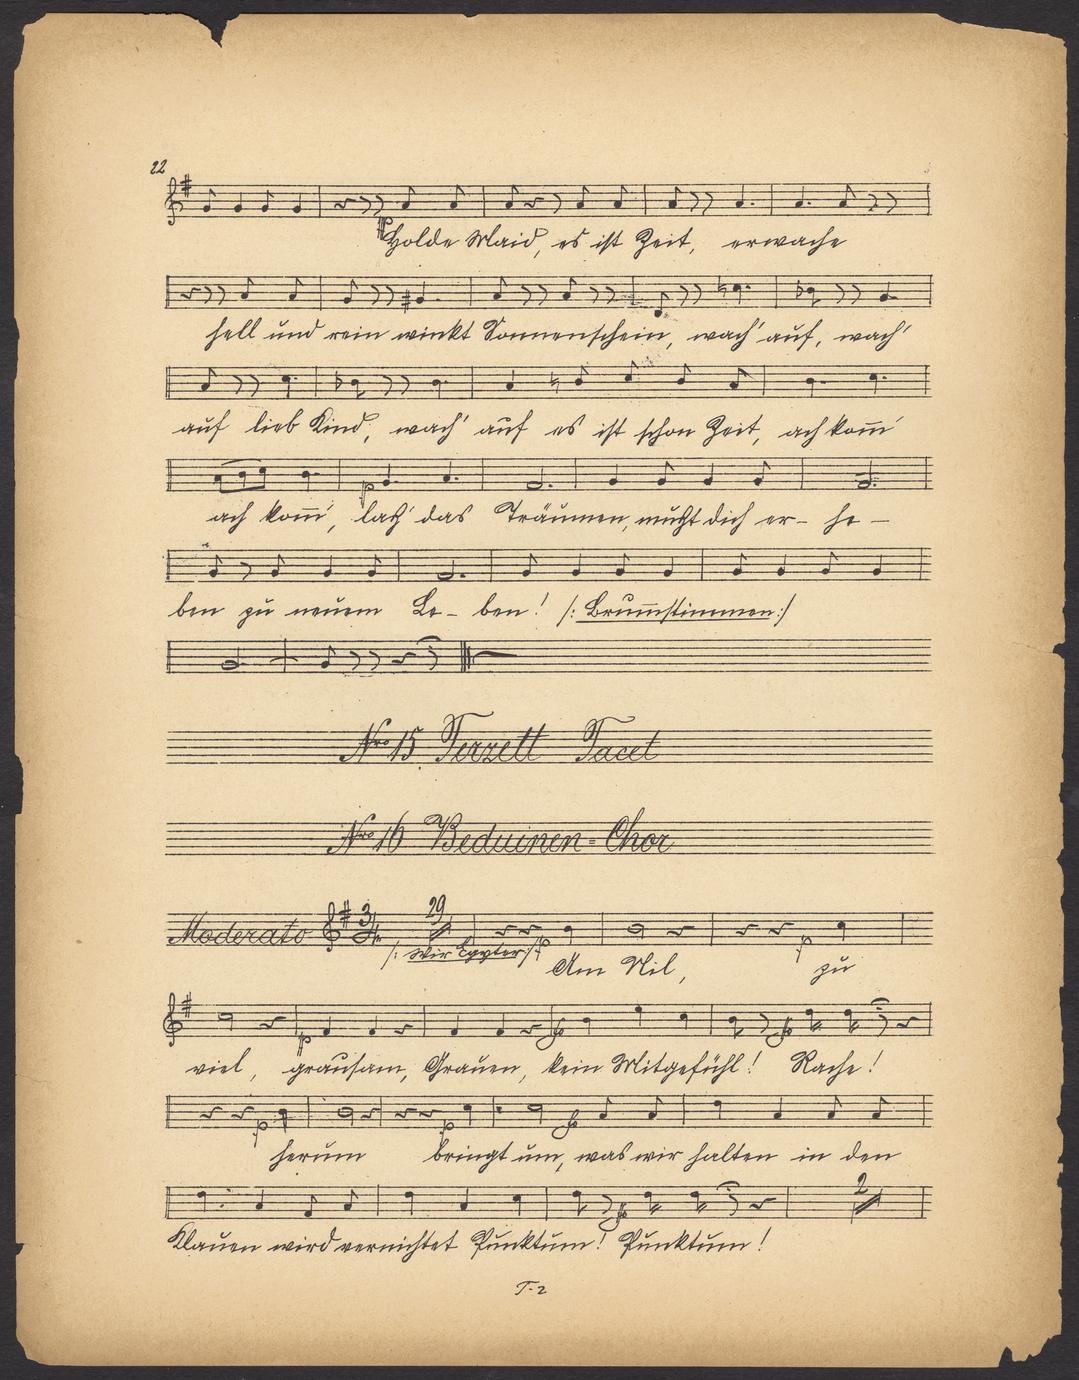 22
Holde Maid, es ist Zeit, erwache
hell und rein winkt Sonnenschein, wach' auf, wach'
auf lieb Kind, wach' auf es ist schon Zeit, ach kom̄'
p
ach kom̄', laß' das Träumen, mußt dich er- he -
ben zu neuem Le- ben! /: Brum̄stimmen :/
Nro 15 Terzett Tacet
Nro 16 Beduinen-Chor
29
Moderato 3/4
/: Wir Egypter :/ p p
Am Nil, zu
p f f
viel, grausam, Grauen, kein Mitgefühl! Rache!
p p f
herum bringt um, was wir halten in den
2
f
Klauen wird vernichtet Punktum! Punktum!
T-2